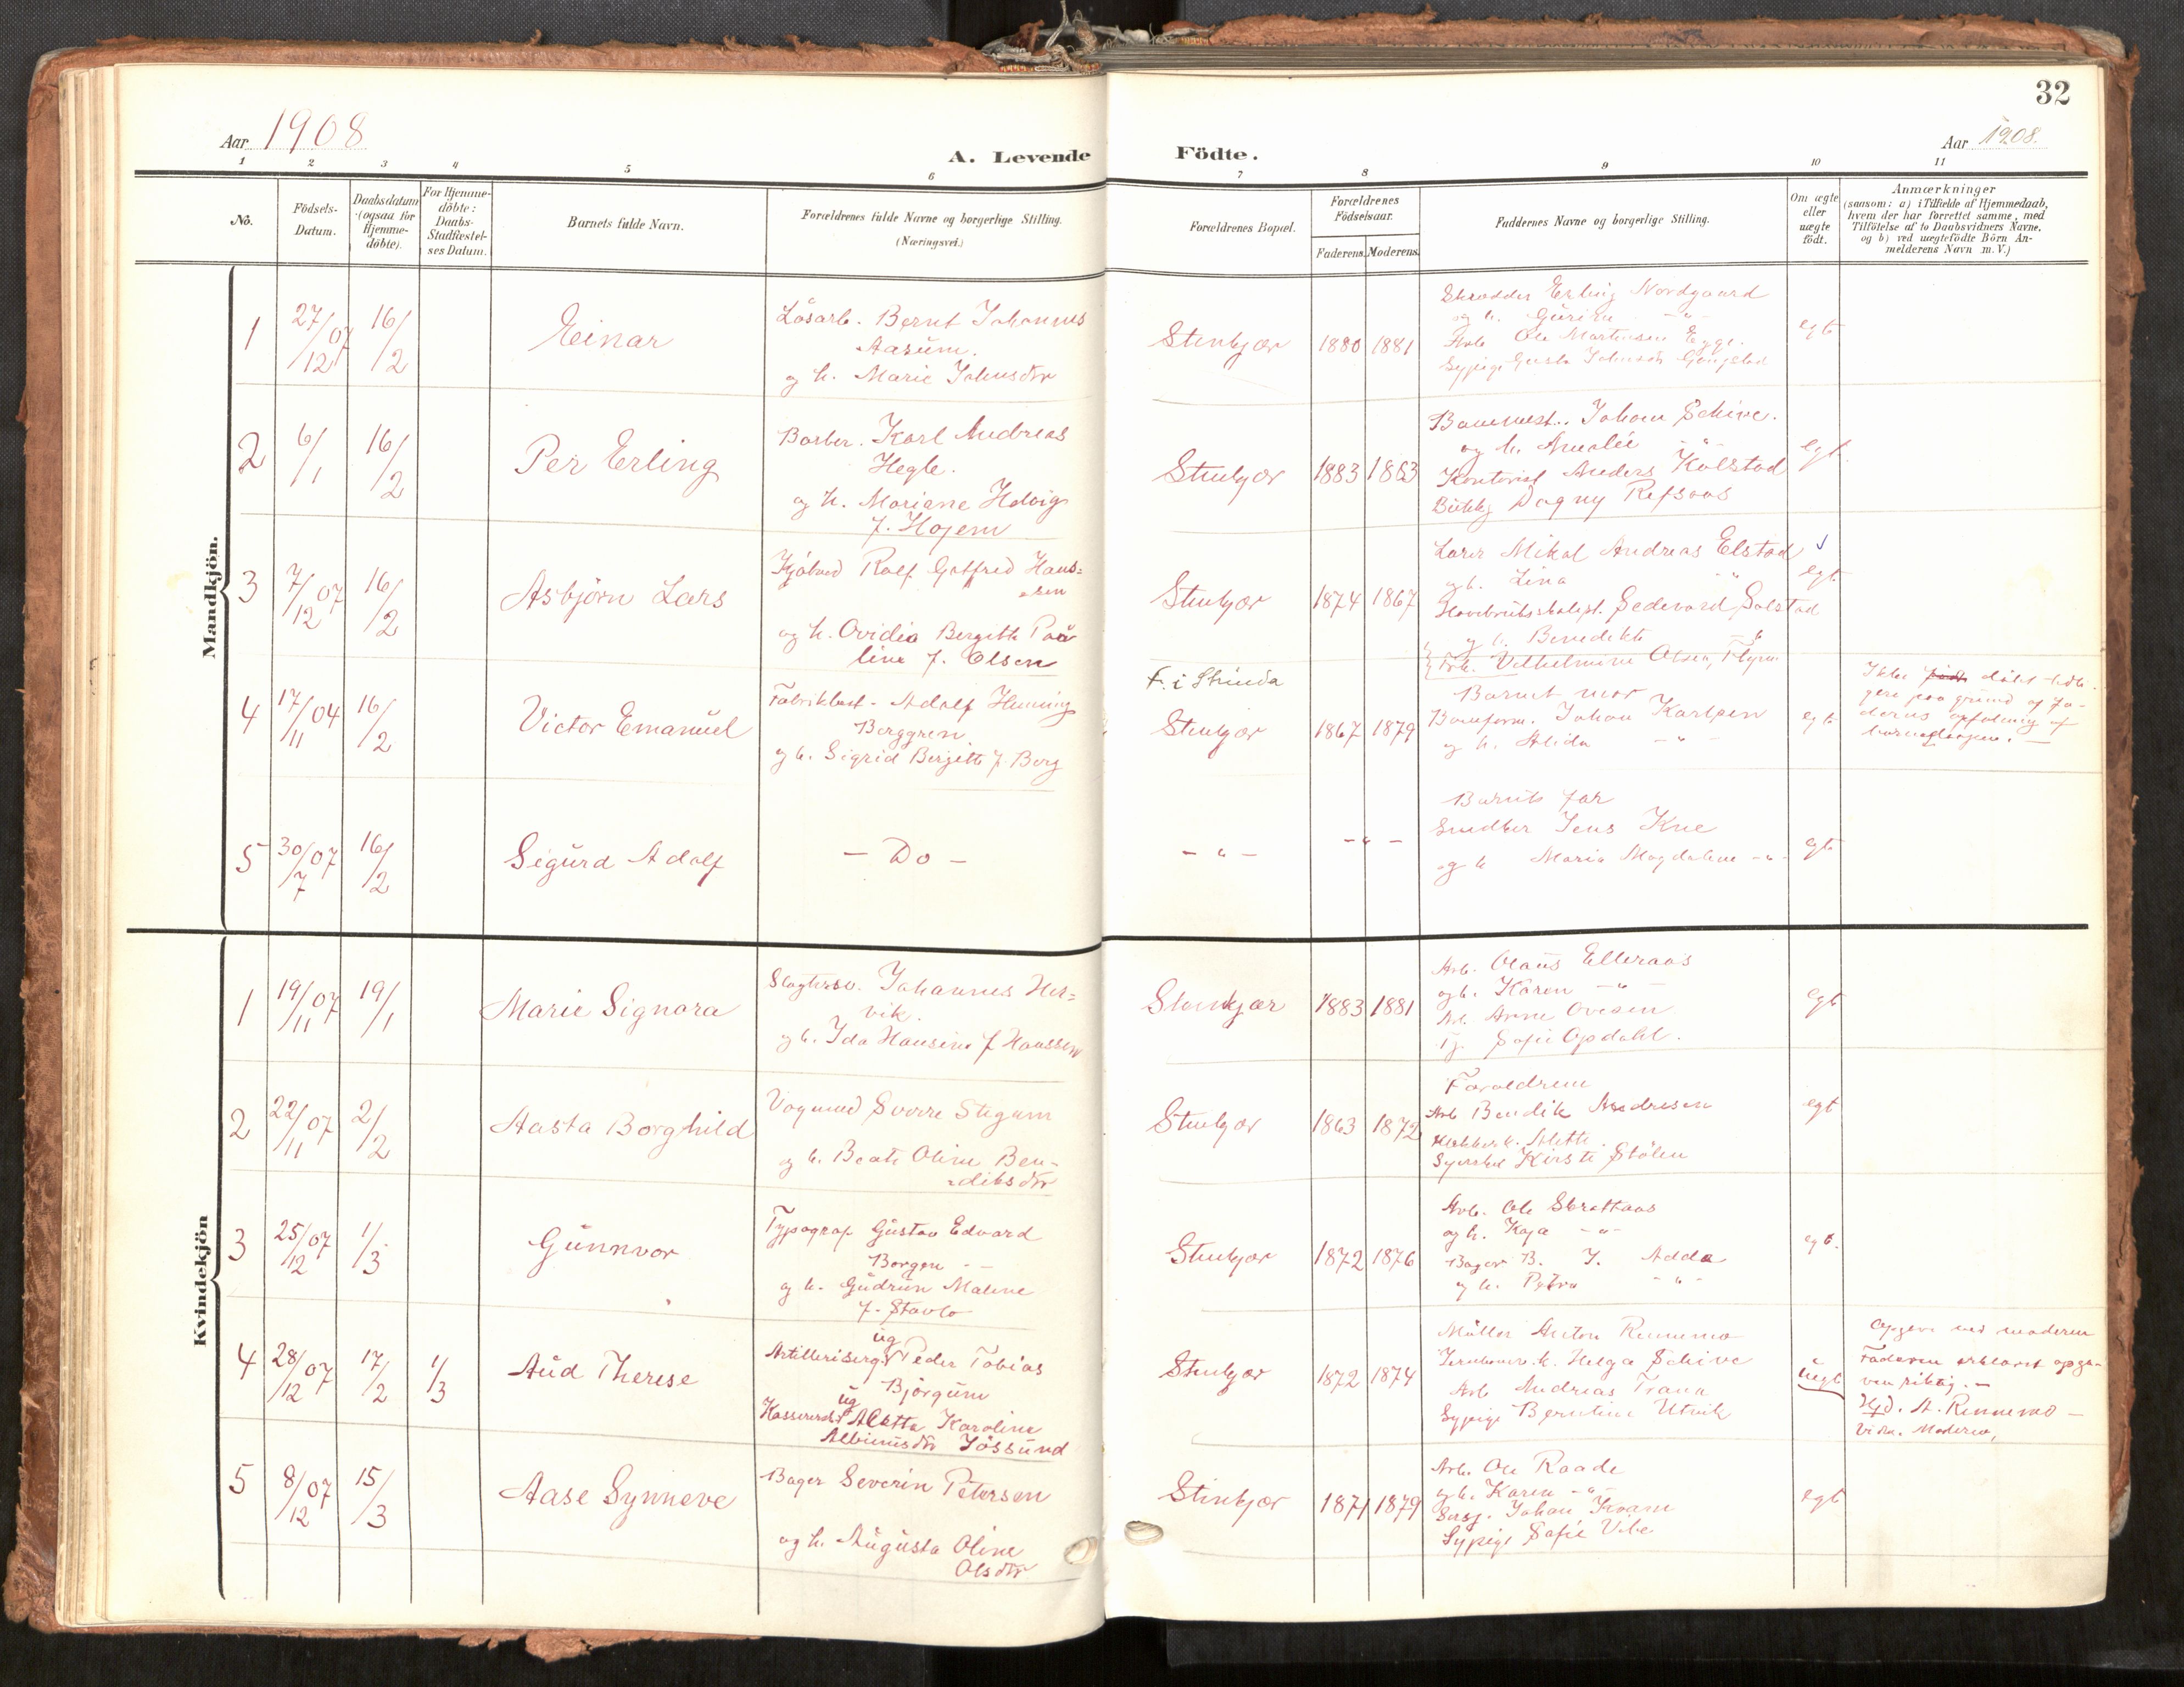 32
Aar 1908
A. Levende Födte.
Aar 1908.
1 2 3 4 5 6 7 8 9 10 11
No.
Födsels-
Datum.
Daabsdatum
(ogsaa för
Hjemme-
döbte).
For Hjemme-
döbte:
Daabs-
Stadfæstel-
ses Datum.
Barnets fulde Navn.
Forældrenes fulde Navne og borgerlige Stilling.
(Næringsvei.)
Forældrenes Bopæl.
Forældrenes
Födselsaar.
Faderens. Moderens.
Faddernes Navne og borgerlige Stilling.
Om ægte
eller
uægte
födt.
Anmærkninger
(saasom: a) i Tilfælde af Hjemmedaab,
hvem der har forrettet samme, med
Tilföielse af to Daabsvidners Navne,
og b) ved uægtefödte Börn An-
melderens Navn m. V.)
Mandkjön.
1
27/12 07
16/2
Einar
Løsarb. Bernt Johannes
Aasum.
og h. Marie Johnsdtr
Stenkjær
1880 1881
Skrædder Erling Nordgaard
og h. Gurine - " -
Arb. Ole Martinsen Egge.
Sypige Gusta Johnsdtr
egte
2
6/1
16/2
Per Erling
Barber. Karl Andreas
Hegle.
og h. Mariane Hedvig
f. Hojem
Stenkjær
1883 1883
Banemest. Johan Schive.
og h. Amalie - " -
Kontorist Anders Kolstad
Dagny Refsaas
egt.
3
7/12 07
16/2
Asbjørn Lars
Kjøbmd Rolf Gotfred Hans=
=sen
og h. Ovidia Bergitte Pau
line f. Olsen
Stenkjær
1874 1867
Lærer Mikal Andreas Elstad
og h. Lina "
Sedevard Solstad
og h. Benedikte - "
Frk. Vilhelmine Olsen,
egt.
4
17/11 04
16/2
Victor Emanuel
Fabrikbest. Adolf Henning
Berggren
og h. Sigrid Bergitte f. Berg
F. i Strinda
Stenkjær
1867 1879
Barnets mor
Baneform. Johan Karlsen
og h. Alida - " -
egte
Ikke født døbt tidli-
gere paa grund af fa-
derens opfatning af
barnedaaben. -
5
30/7 07
16/2
Sigurd Adolf
- Do -
- " -
- " -
Barnets far
Snedker Jens Kne
og h Maria Magdalene - " -
egte
Kvindekjön
1
19/11 07
19/1
Marie Signora
Slagtersv. Johannes Her=
vik.
og h. Ida Hansine f. Hanssen
Stenkjær
1883 1881
Arb. Olaus Elleraas
og h. Karen - " -
Arb. Arne Ovesen
Tj. Sofie Opdahl.
egte
2
22/11 07
2/2
Aasta Borghild
Vognmd Sverre Stigum
og h. Beate Oline Ben-
=diksdtr
Stenkjær
1863 1872
Forældrene
Arb Bendik Andresen
Alette.
Syerske Kirsti Stölen
egt
3
25/12 07
1/3
Gunnvor
Typograf Gustav Edvard
Borgen - -
og h. Gudrun Malene
f. Stavlo
Stenkjær
1872 1876
Arb. Ole Skrattaas
og h. Kaja - " -
Bager B. J. Adde
og h. Petra - " -
egt.
4
28/12 07
17/2
1/3
Aud Therese
ug
Artillerisergt Peder Tobias
Bjørgum
ug
Kassererske Aletta Karoline
Albinusdtr Jössund
Stenkjær
1872 1874
Møller Anton Rennemo
Helga Schive
Arb Andreas Trana
Sypige Berntine Utvik
uegt
Opgivet ved moderen
Faderen erklæret opgi-
ven riktig. -
Hjd. A. Rennemo -
Vidn. Moderen,
5
8/12 07
15/3
Aase Synneve
Bager Severin Petersen
og h. Augusta Oline
Olsdtr
Stenkjær
1871 1879
Arb. Ole Raade
og h. Karen - " -
Johan Kvam
Sypige Sofie Vibe
egt